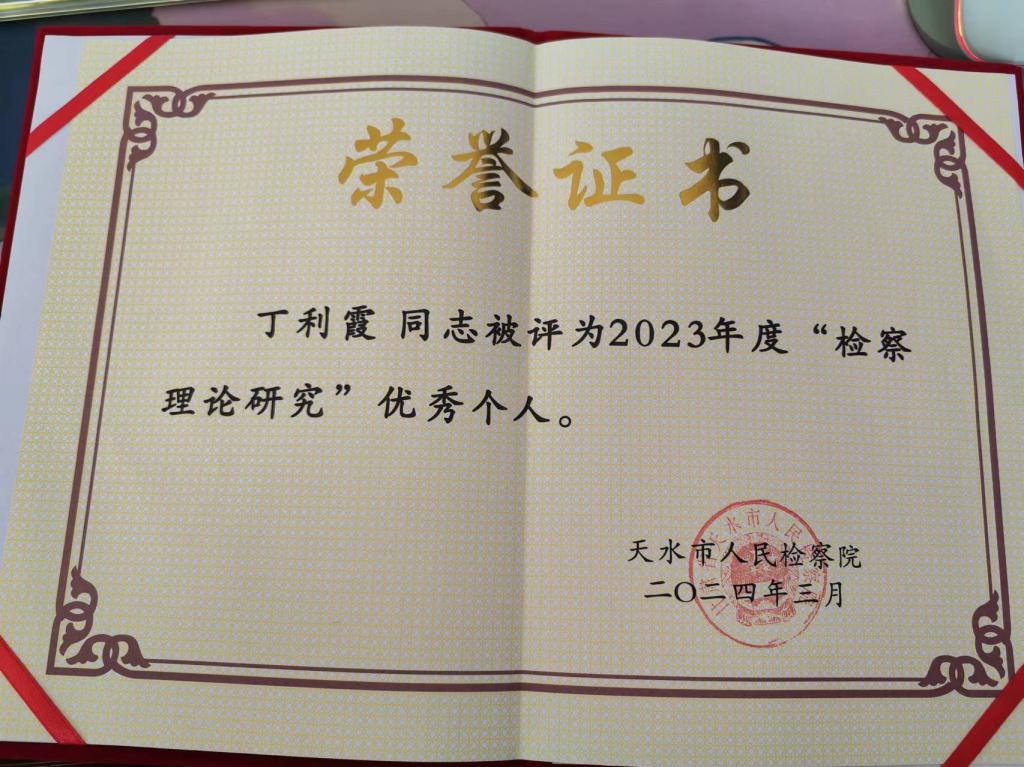 荣誉证书
丁利霞 同志被评为2023年度“检察
理论研究”优秀个人。
天水市人民检察院
二〇二四年三月
天水市人民